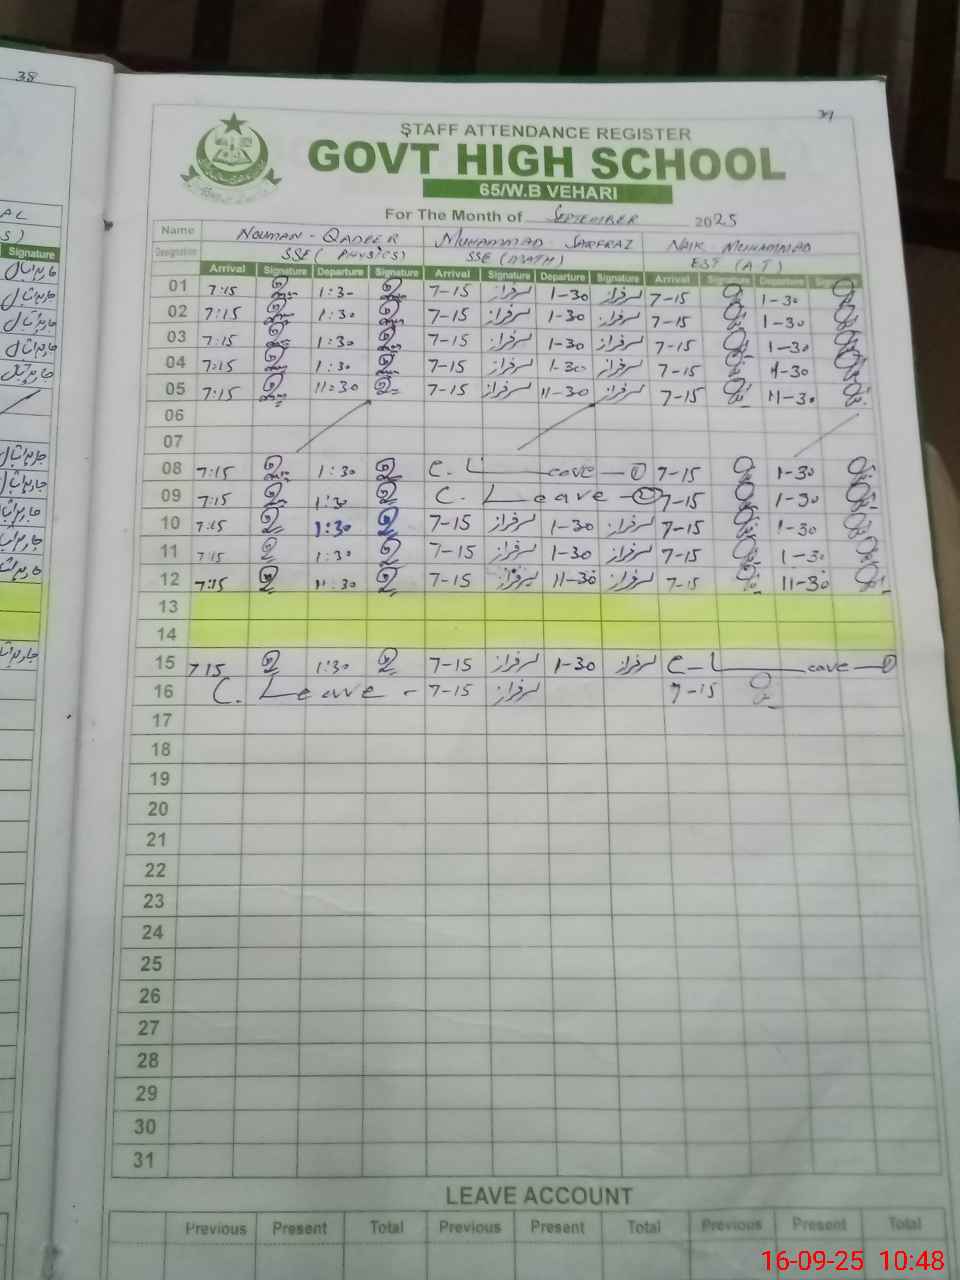 38
39
STAFF ATTENDANCE REGISTER
GOVT HIGH SCHOOL
65/W.B VEHARI
For The Month of SEPTEMBER 2025
Name NOUMAN-QADEER MUHAMMAD SARFRAZ NAIK MUHAMMAD
Designation SSE (PHYSICS) SSE (MATH) EST (A T)
Signature Arrival Signature Departure Signature Arrival Signature Departure Signature Arrival Signature Departure Signature
01 7:15 1:30 7-15 سرفراز 1-30 سرفراز 7-15 1-30
02 7:15 1:30 7-15 سرفراز 1-30 سرفراز 7-15 1-30
03 7:15 1:30 7-15 سرفراز 1-30 سرفراز 7-15 1-30
04 7:15 1:30 7-15 سرفراز 1-30 سرفراز 7-15 1-30
05 7:15 11:30 7-15 سرفراز 11-30 سرفراز 7-15 11-30
06
07
08 7:15 1:30 C. Leave-① 7-15 1-30
09 7:15 1:30 C. Leave-② 7-15 1-30
10 7:15 1:30 7-15 سرفراز 1-30 سرفراز 7-15 1-30
11 7:15 1:30 7-15 سرفراز 1-30 سرفراز 7-15 1-30
12 7:15 11:30 7-15 سرفراز 11-30 سرفراز 7-15 11-30
13
14
15 7:15 1:30 7-15 سرفراز 1-30 سرفراز C-Leave-①
16 C. Leave- 7-15 سرفراز 7-15
17
18
19
20
21
22
23
24
25
26
27
28
29
30
31
LEAVE ACCOUNT
Previous Present Total Previous Present Total Previous Present Total
16-09-25 10:48